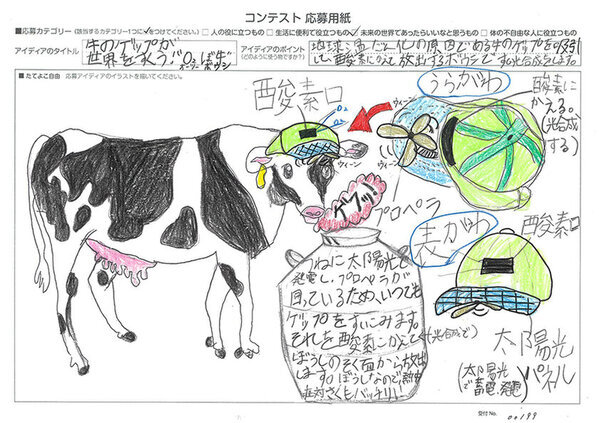 コンテスト 応募用紙
■応募カテゴリー(該当するカテゴリー1つに✓をつけてください。) □ 人の役に立つもの □ 生活に便利で役立つもの ☑ 未来の世界であったらいいなと思うもの □ 体の不自由な人に役立つもの
アイディアのタイトル
牛のゲップが
世界を救う!"O₂ぼ牛"
オーツー ボウシ
アイディアのポイント
(どのように使う物ですか?)
地球温だん化の原因である牛のゲップを吸引
して、酸素にかえて放出するボウシです。光合成もします。
■たてよこ自由 応募アイディアのイラストを描いてください。
酸素口
O₂
O₂
ウィーン
ウィーン
ウィーン
ゲフッ!
プロペラ
うらがわ
酸素に
かえる。
(光合成
する)
表がわ
酸素口
太陽光
パネル
(太陽光
で蓄電、発電)
つねに太陽光で
発電し、プロペラが
回っているため、いつでも
ゲップをすいこみます。
それを酸素にかえて(光合成で)
ぼうしのそく面から放出
します。ぼうしなので熱中
症対さくもバッチリ!
受付No. 00199